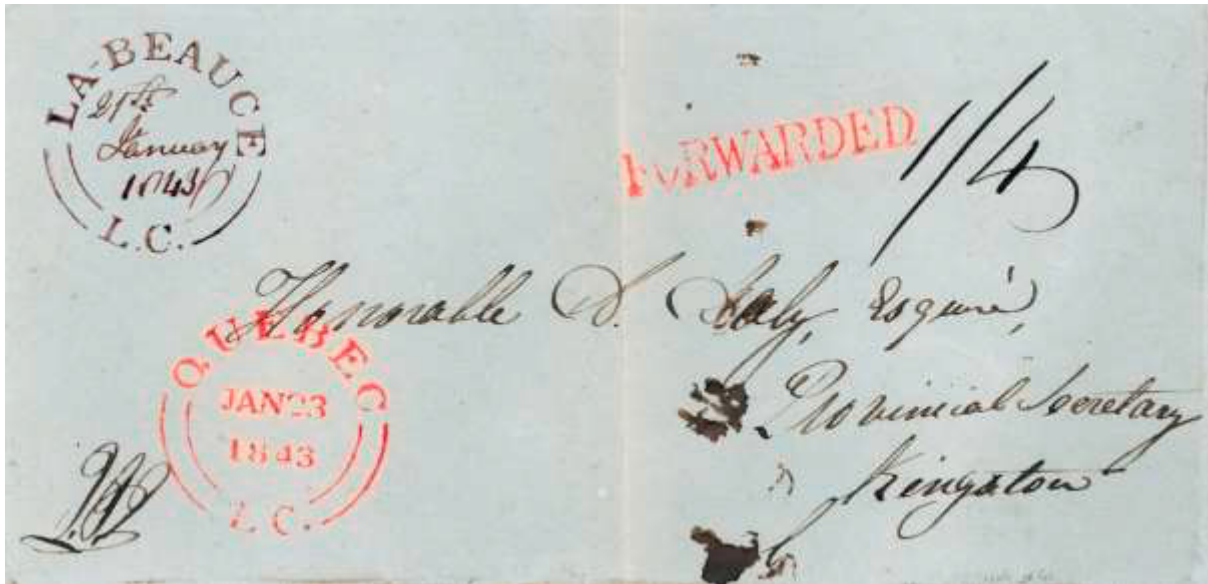 LA-BEAUCE
21st
January
1843
L.C.
FORWARDED
1/4
Honorable D. Daly, Esquire,
Provinicial Secretary
Kingston
QUEBEC
JAN 23
1843
L.C.